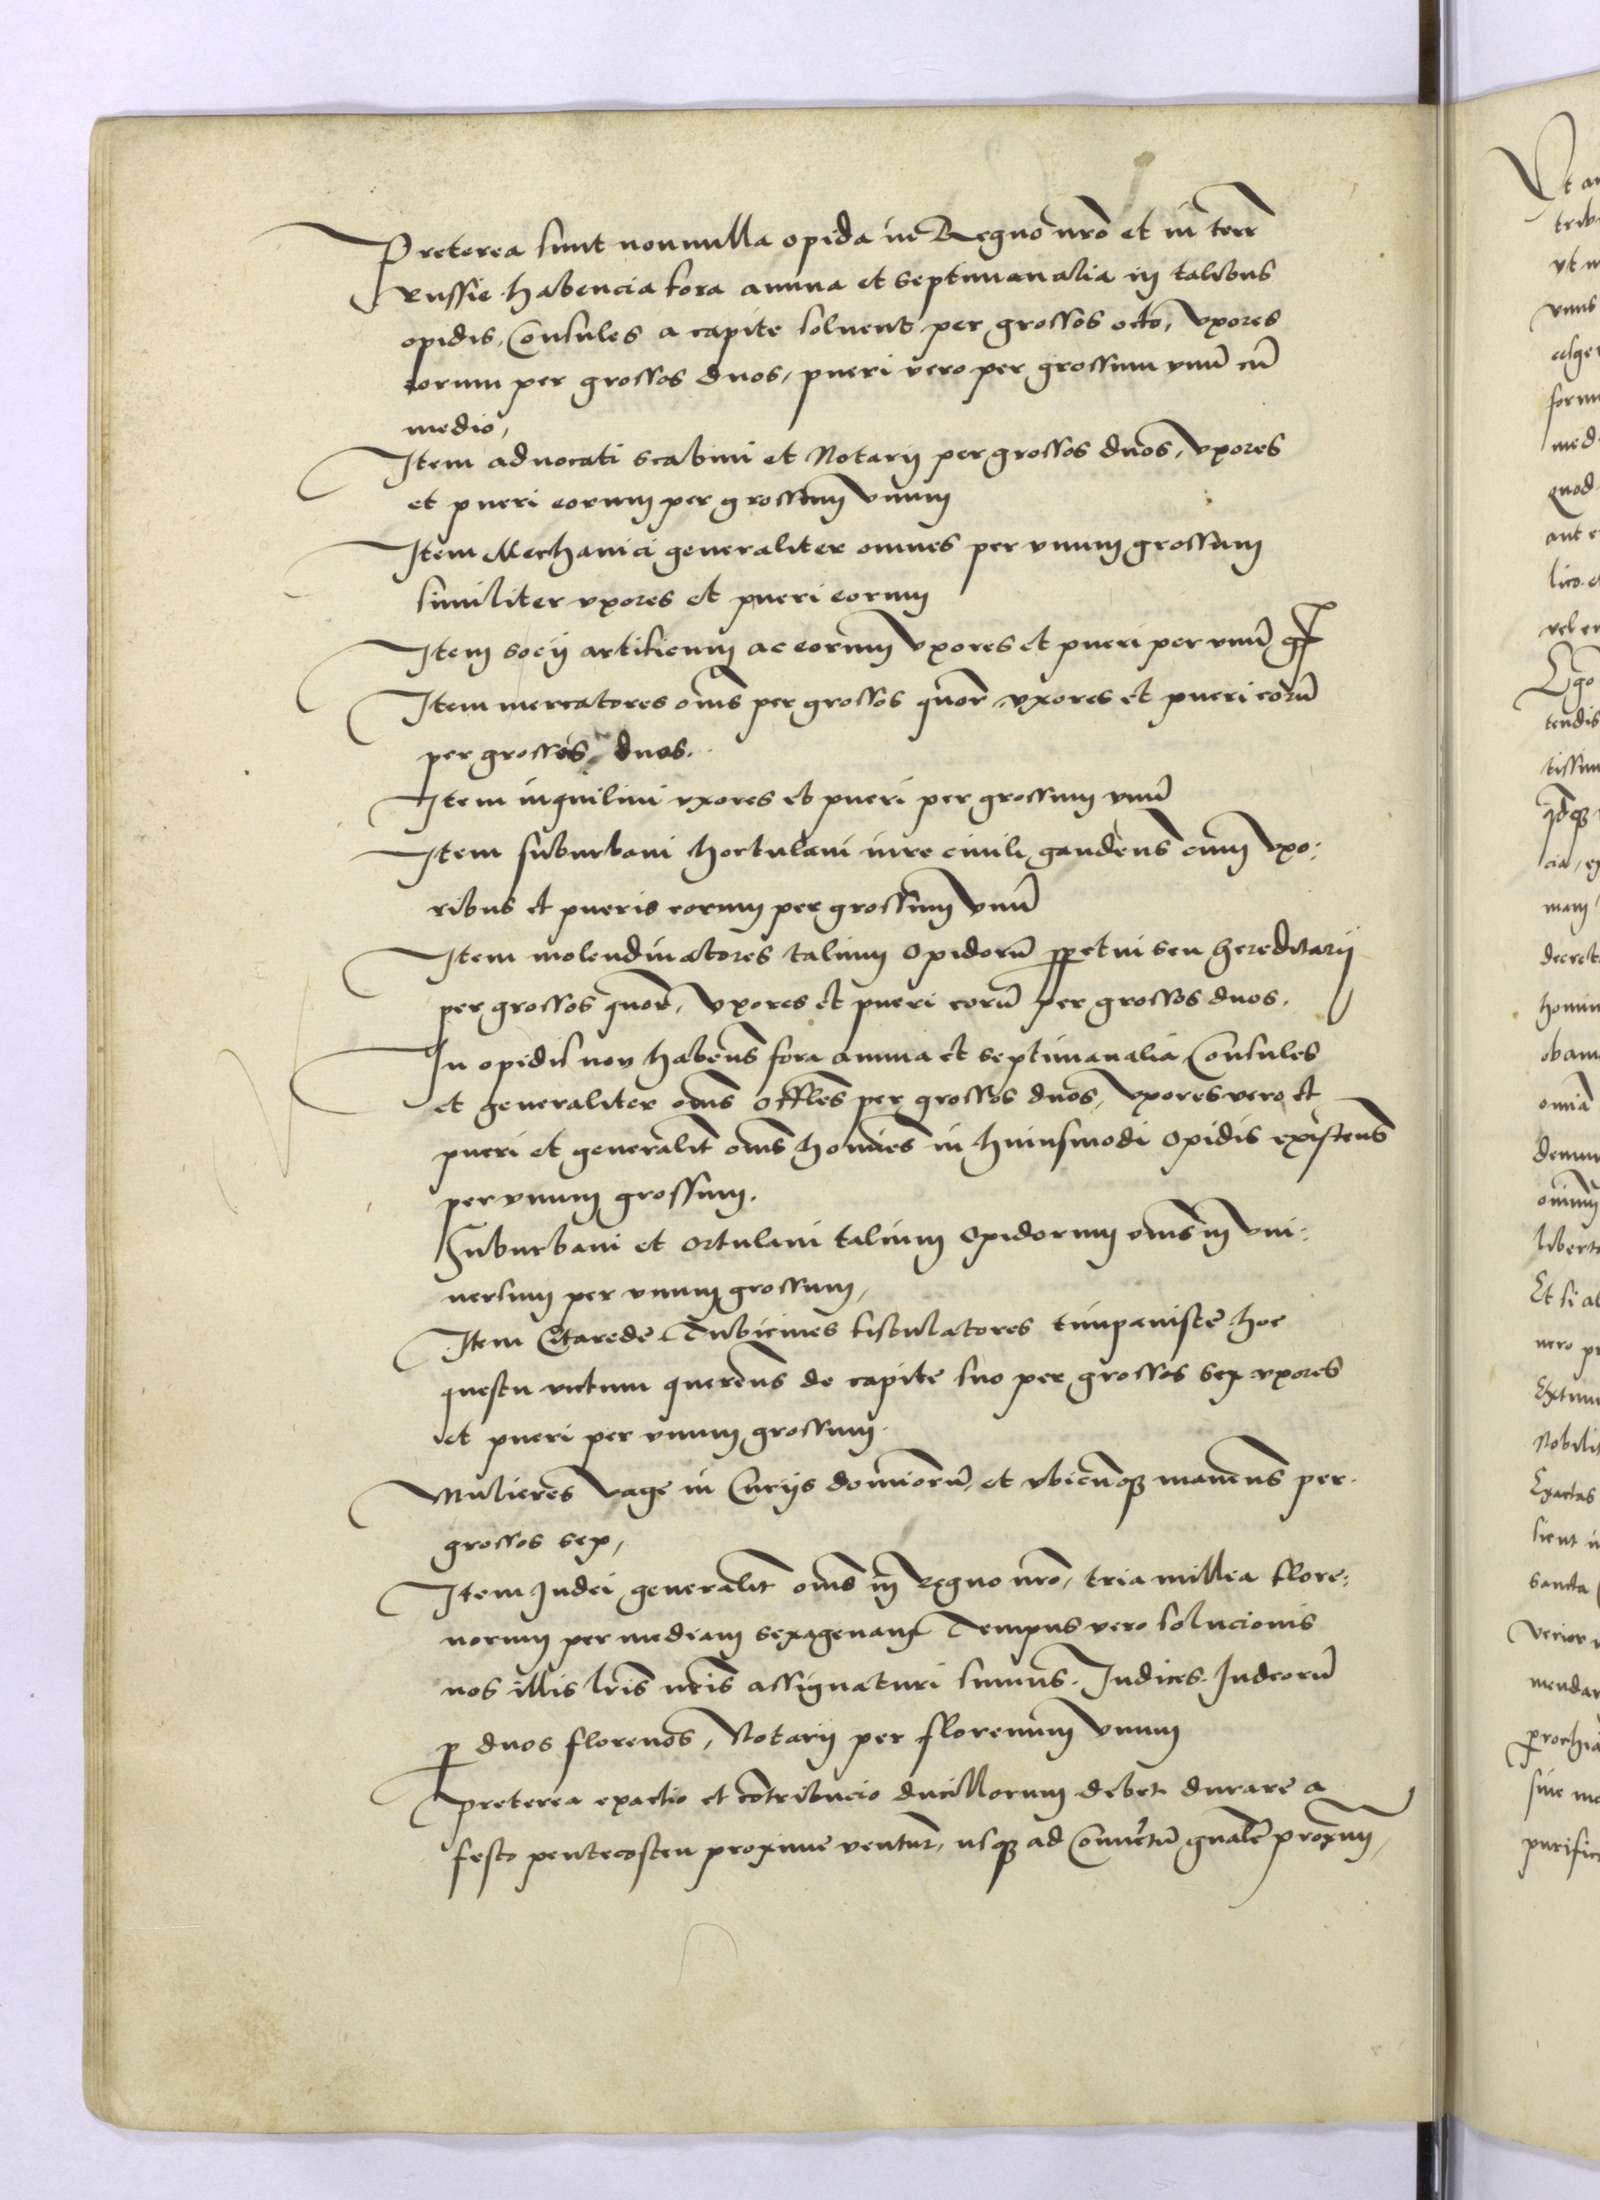 Preterea sunt nonnulla opida in Regno nrō et in terr
Russie habencia fora annua et septimanalia in talibus
opidis, Consules a capite soluent per grossos octo, vxores
eorum per grossos duos, pueri vero per grossum vnū cū
medio,
Item aduocati scabini et Notarij per grossos duos, vxores
et pueri eorum per grossum vnum
Item Mechanici generaliter omnes per vnum grossum
similiter vxores et pueri eorum
Item socij artificum ac eorum vxores et pueri per vnū gr
Item mercatores oms̄ per grossos quor̄ vxores et pueri eorū
per grossos duos.
Item inquilini vxores et pueri per grossum vnū
Item suburbani hortulani iure ciuili gauden̄s cum vxo:
ribus et pueris eorum per grossum vnū
Item molendinatores talium opidorū ꝑpetui seu hereditarij
per grossos quor̄, vxores et pueri eorū per grossos duos.
In opidis non haben̄s fora annua et septimanalia Consules
et generaliter oms̄ offles̄ per grossos duos, vxores vero et
pueri et generalit̄ oms̄ homīes in huiusmodi opidis existen̄s
per vnum grossum.
Suburbani et ortulani talium opidorum oms̄ in vni:
uersum per vnum grossum,
Item Citarede Tubicines fistulatores timpaniste hoc
questu victum queren̄s de capite suo per grossos sex vxores
et pueri per vnum grossum.
Mulieres vage in Curijs domīorū, et vbicunqꝫ manen̄s per
grossos sex,
Item Judei generalit̄ oms̄ in Regno nrō, tria millea flore:
norum per mediam sexagenam Tempus vero solucionis
nos illis lris̄ nris̄ assignaturi sumus. Judices Judeorū
ꝑ duos florenos, Notarij per florenum vnum
Preterea exactio et cōtribucio ducillorum debet durare a
festo pentecosten proxime ventur̄, usqꝫ ad Conuētū gnalē proximū,